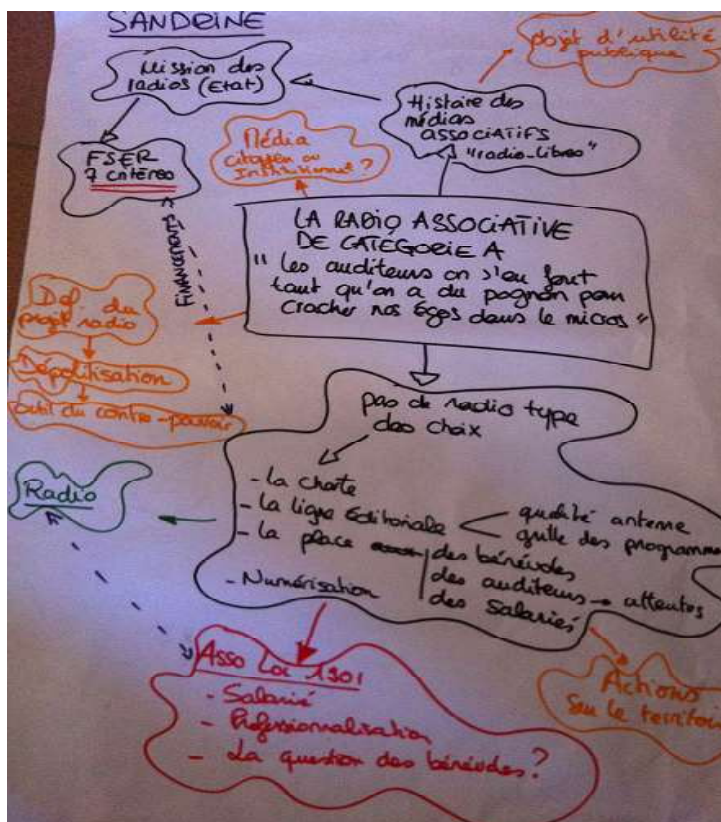 SANDRINE
Mission des
radios (Etat)
Projet d'utilité
publique
Histoire des
médias
ASSOCIATIFS
"radio-libres"
FSER
7 critères
Média
citoyen ou
Institutionnel ?
FINANCEMENTS
LA RADIO ASSOCIATIVE
DE CATÉGORIE A
" Les auditeurs on s'en fout
tant qu'on a du pognon pour
cracher nos Egos dans le micros "
Def. du
projet radio
Dépolitisation
outil du contre-pouvoir
pas de radio type
des choix
- la charte
- la ligne Editoriale
qualité antenne
grille des programme
- la place
des bénévoles
des auditeurs → attentes
des salariés
- Numérisation
Radio
Asso Loi 1901
- Salarié
- Professionnalisation
- La question des bénévoles ?
Actions
Sur le territoir